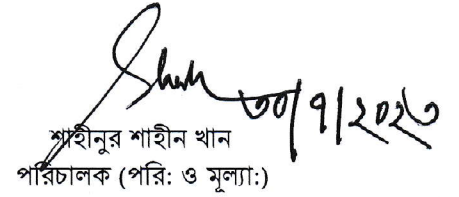 ৩০/৭/২০২৩
শাহীনুর শাহীন খান
পরিচালক (পরি: ও মূল্যা:)